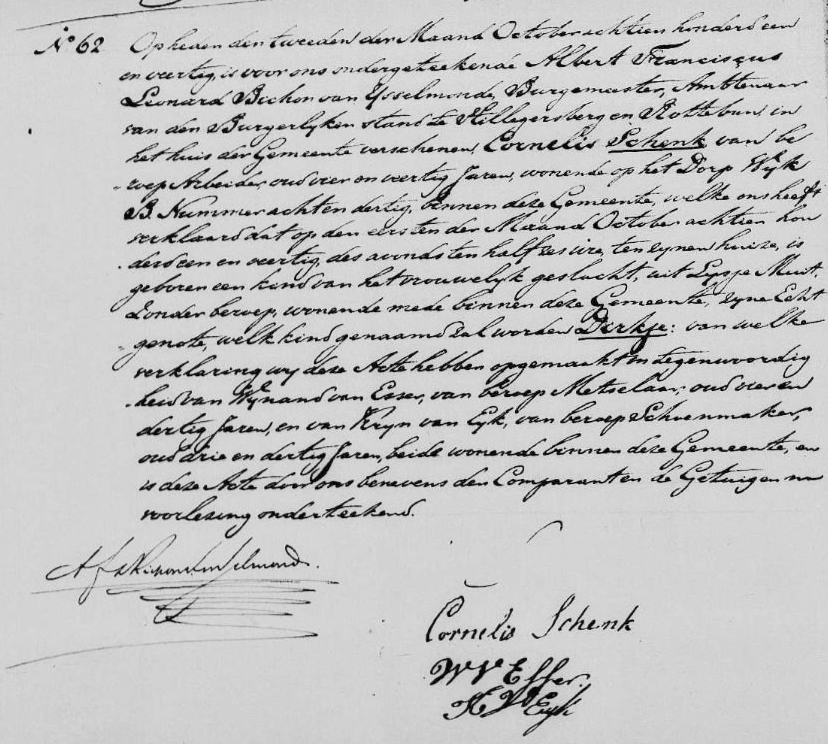 No 62 Op heden den tweeden der Maand October achtien honderd een
en veertig, is voor ons ondergeteekende Albert Franciscus
Leonard Bichon van Ysselmonde, Burgemeester, Ambtenaar
van den Burgerlyken stand te Hillegersberg en Rottebun, in
het huis der Gemeente verschenen, Cornelis Schenk van be
-roep Arbeider, oud vier en veertig Jaren, wonende op het Dorp Wyk
B. Nummer acht en dertig, binnen deze Gemeente, welke ons heeft
verklaard dat op den eersten der Maand October achtien hon
derd een en veertig, des avonds ten half zes ure, ten zynen huize, is
geboren een kind van het vrouwelyk geslacht, uit Lysje Muit,
Zonder beroep, wonende mede binnen deze Gemeente, zyne Echt
genote, welk kind genaamd zal worden Dirkje: van welke
verklaring wy deze Acte hebben opgemaakt in tegenwoordig
heid van Wynand van Esser, van beroep Metselaar, oud vier en
dertig Jaren, en van Kryn van Eyk, van beroep Schoenmaker,
oud drie en dertig Jaren, beide wonende binnen deze Gemeente, en
is deze Acte door ons benevens den Comparant en de Getuigen na
voorlezing onderteekend.
Cornelis Schenk
W V Esser.
K V Eyk